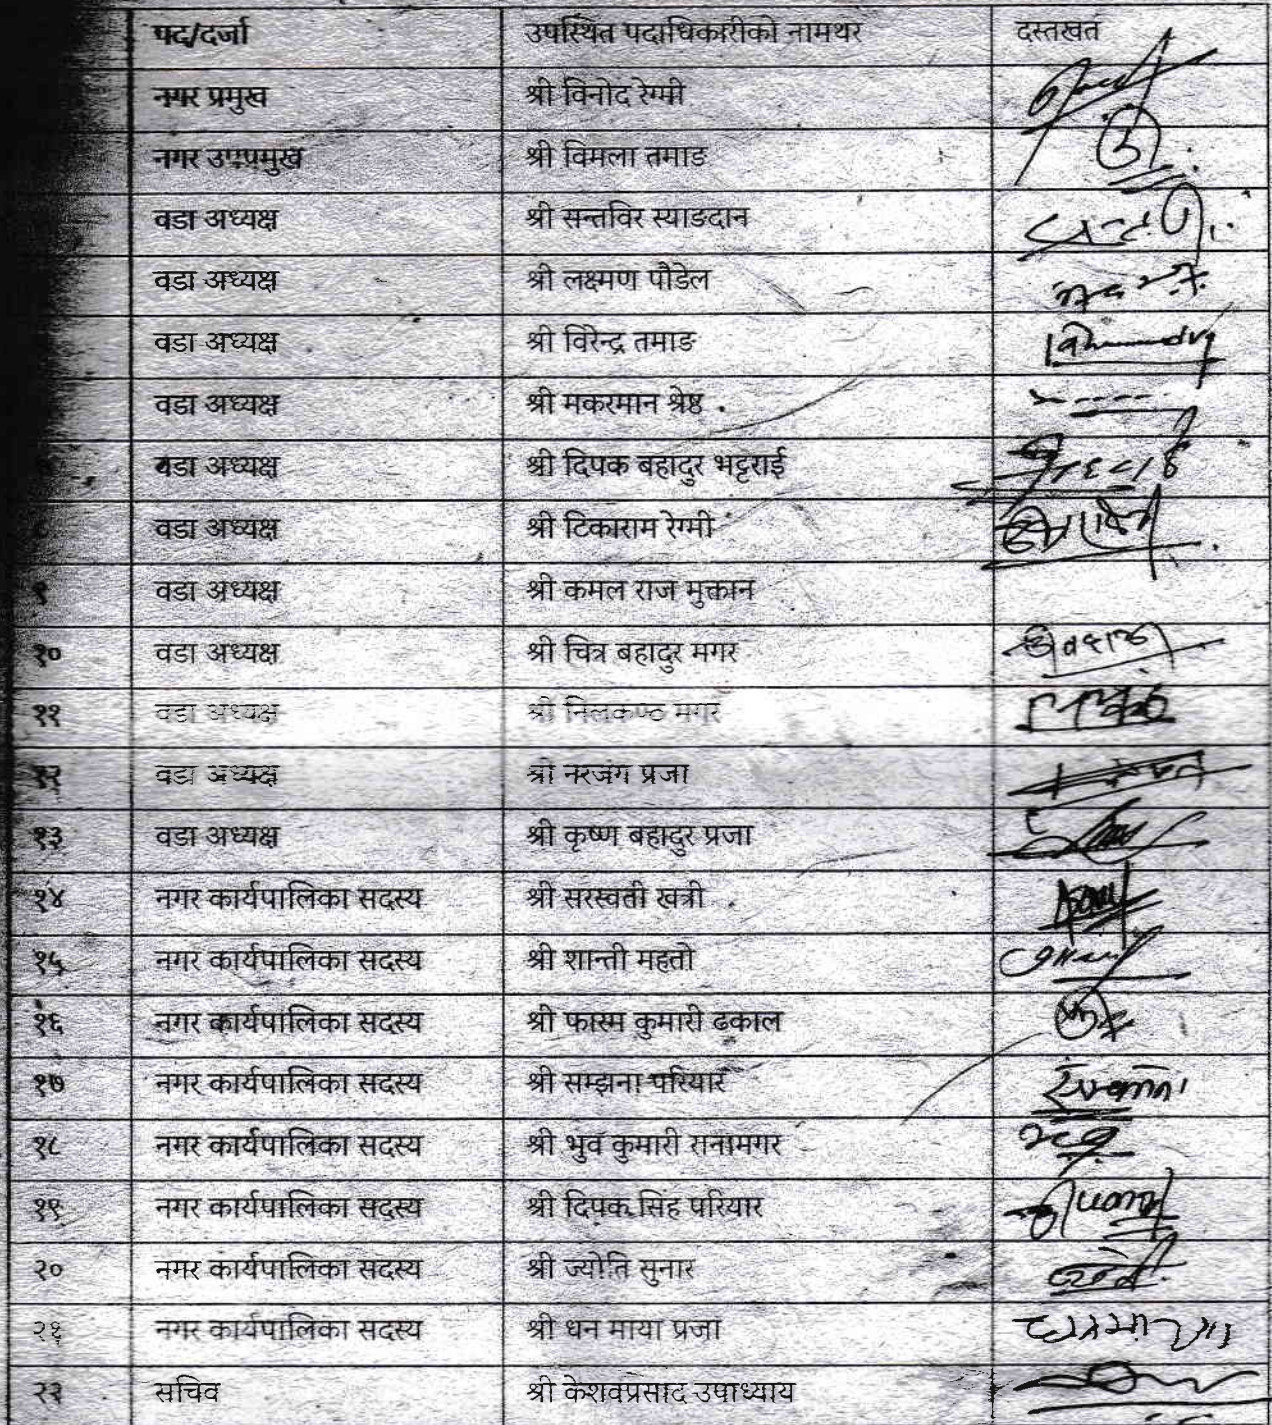 पद/दर्जा उपस्थित पदाधिकारीको नामथर दस्तखत
नगर प्रमुख श्री विनोद रेग्मी
नगर उपप्रमुख श्री विमला तमाङ
वडा अध्यक्ष श्री सन्तविर स्याङदान
वडा अध्यक्ष श्री लक्ष्मण पौडेल
वडा अध्यक्ष श्री विरेन्द्र तमाङ
वडा अध्यक्ष श्री मकरमान श्रेष्ठ
वडा अध्यक्ष श्री दिपक बहादुर भट्टराई
८ वडा अध्यक्ष श्री टिकाराम रेग्मी
९ वडा अध्यक्ष श्री कमल राज मुक्तान
१० वडा अध्यक्ष श्री चित्र बहादुर मगर
११ वडा अध्यक्ष श्री निलकण्ठ मगर
१२ वडा अध्यक्ष श्री नरजंग प्रजा
१३ वडा अध्यक्ष श्री कृष्ण बहादुर प्रजा
१४ नगर कार्यपालिका सदस्य श्री सरस्वती खत्री
१५ नगर कार्यपालिका सदस्य श्री शान्ती महतो
१६ नगर कार्यपालिका सदस्य श्री फारम कुमारी ढकाल
१७ नगर कार्यपालिका सदस्य श्री सम्झना परियार
१८ नगर कार्यपालिका सदस्य श्री भुव कुमारी रानामगर
१९ नगर कार्यपालिका सदस्य श्री दिपक सिंह परियार
२० नगर कार्यपालिका सदस्य श्री ज्योति सुनार
२१ नगर कार्यपालिका सदस्य श्री धन माया प्रजा
२२ सचिव श्री केशवप्रसाद उपाध्याय